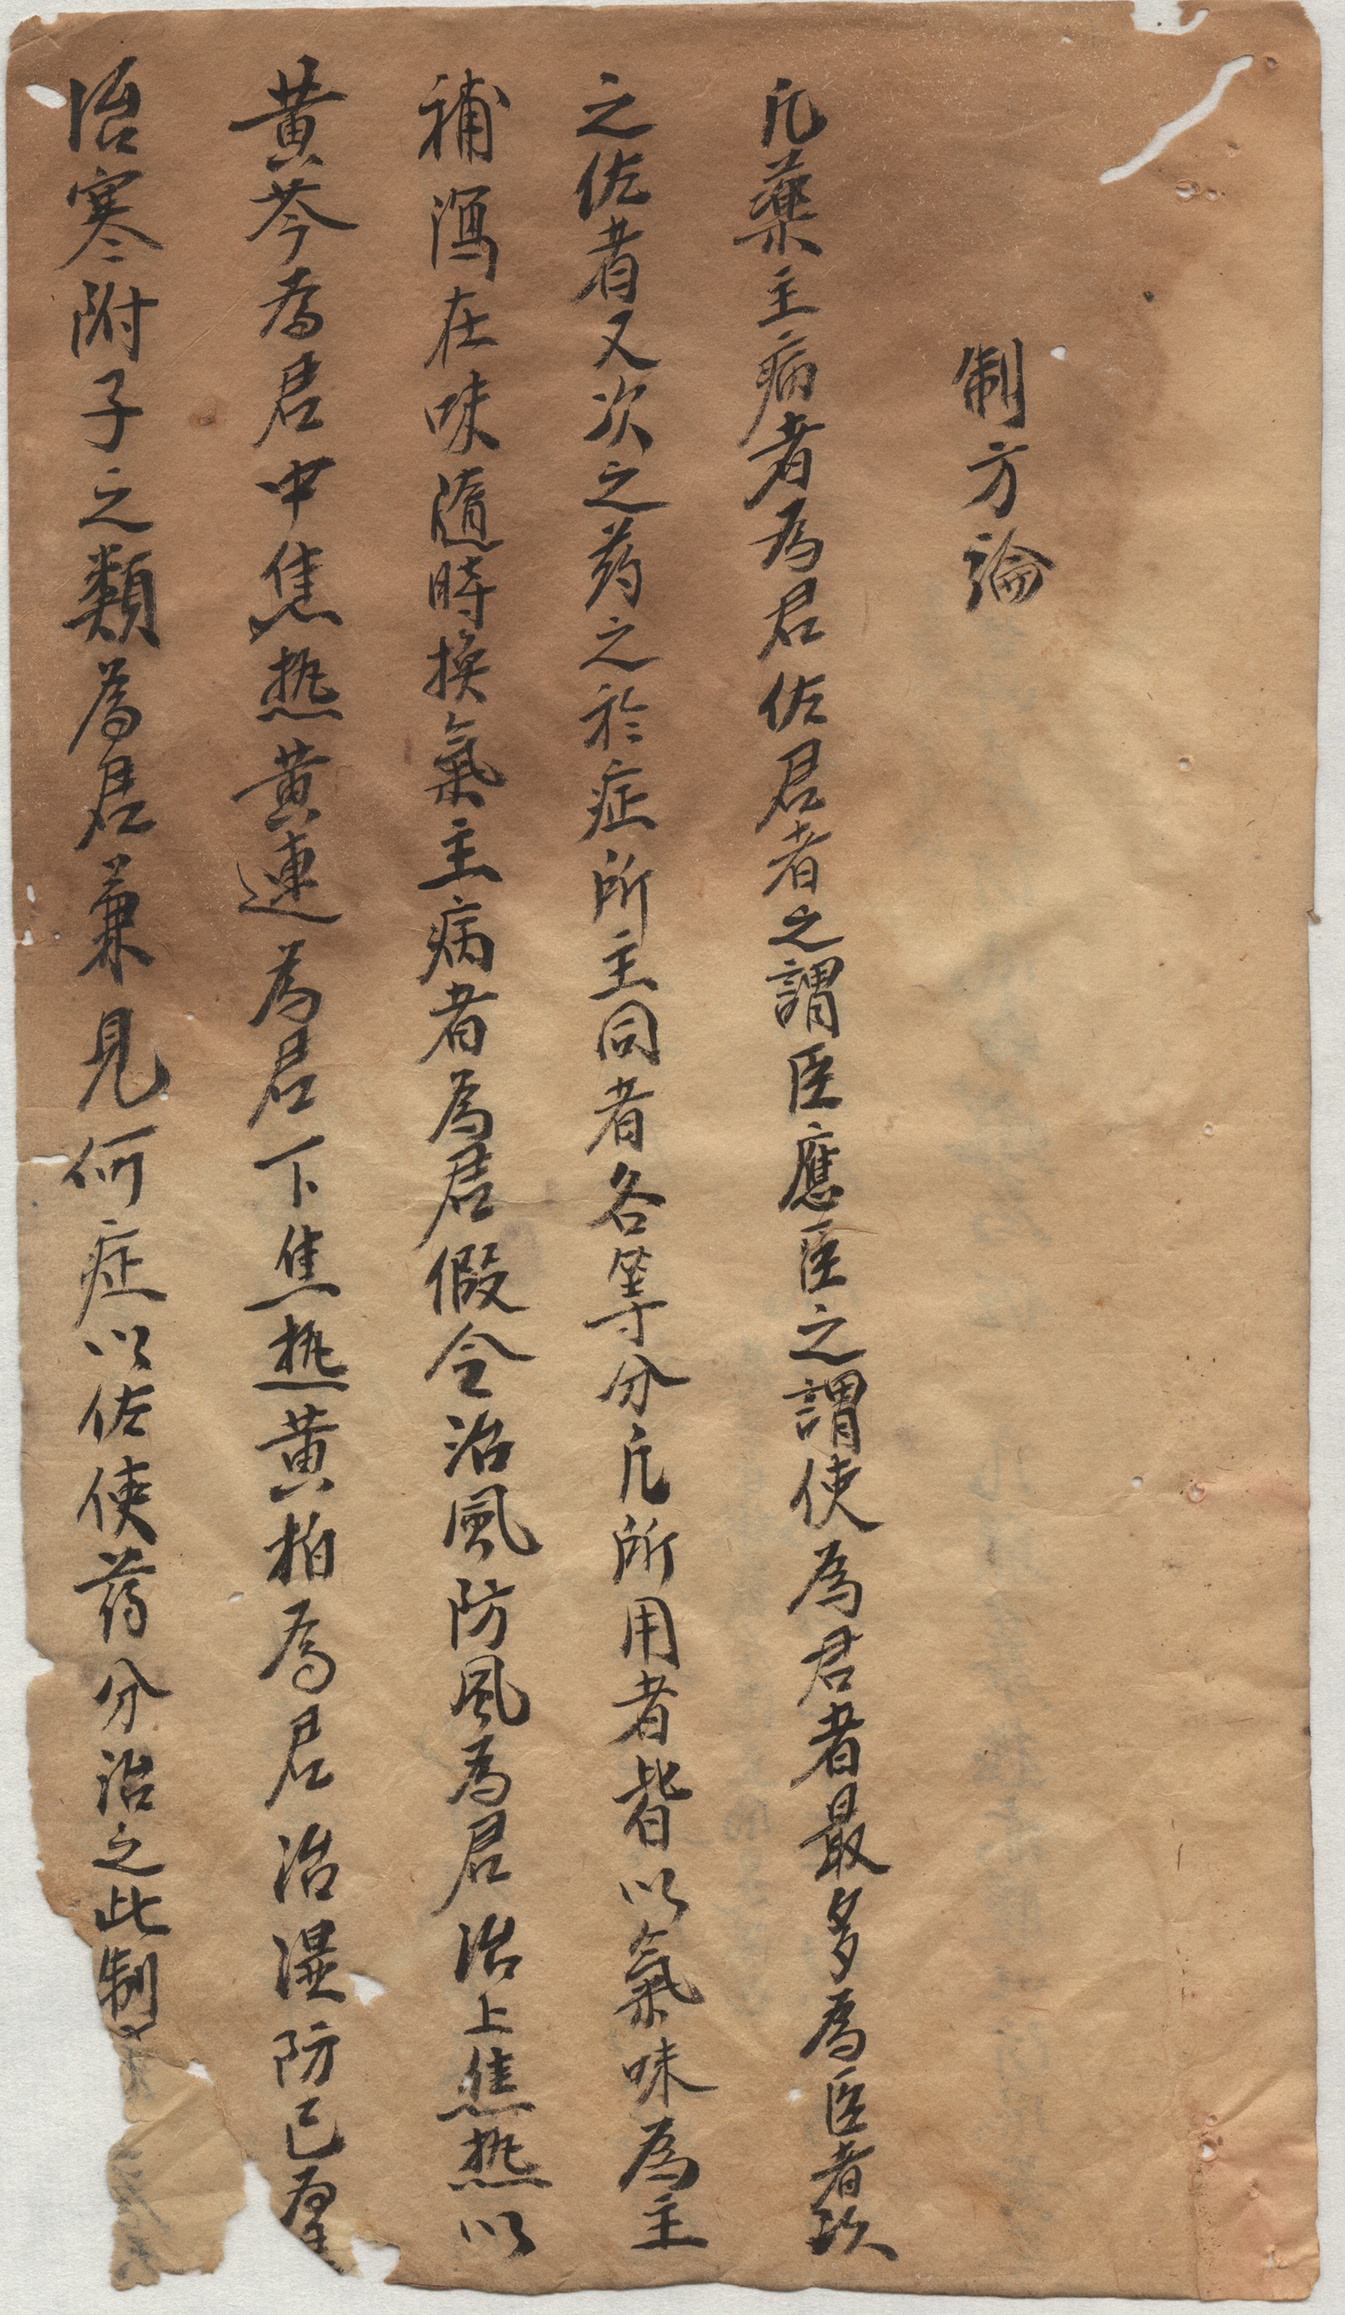 制方論
凡藥主病者為君佐君者之謂臣應臣之謂使為君者最多為臣者次
之佐者又次之药之於症所主同者各等分凡所用者皆以氣味為主
補瀉在味隨時換氣主病者為君假令治風防風為君治上焦热以
黄芩為君中焦热黄連為君下焦热黄柏為君治濕防已為君
治寒附子之類為君兼見何症以佐使药分治之此制方之